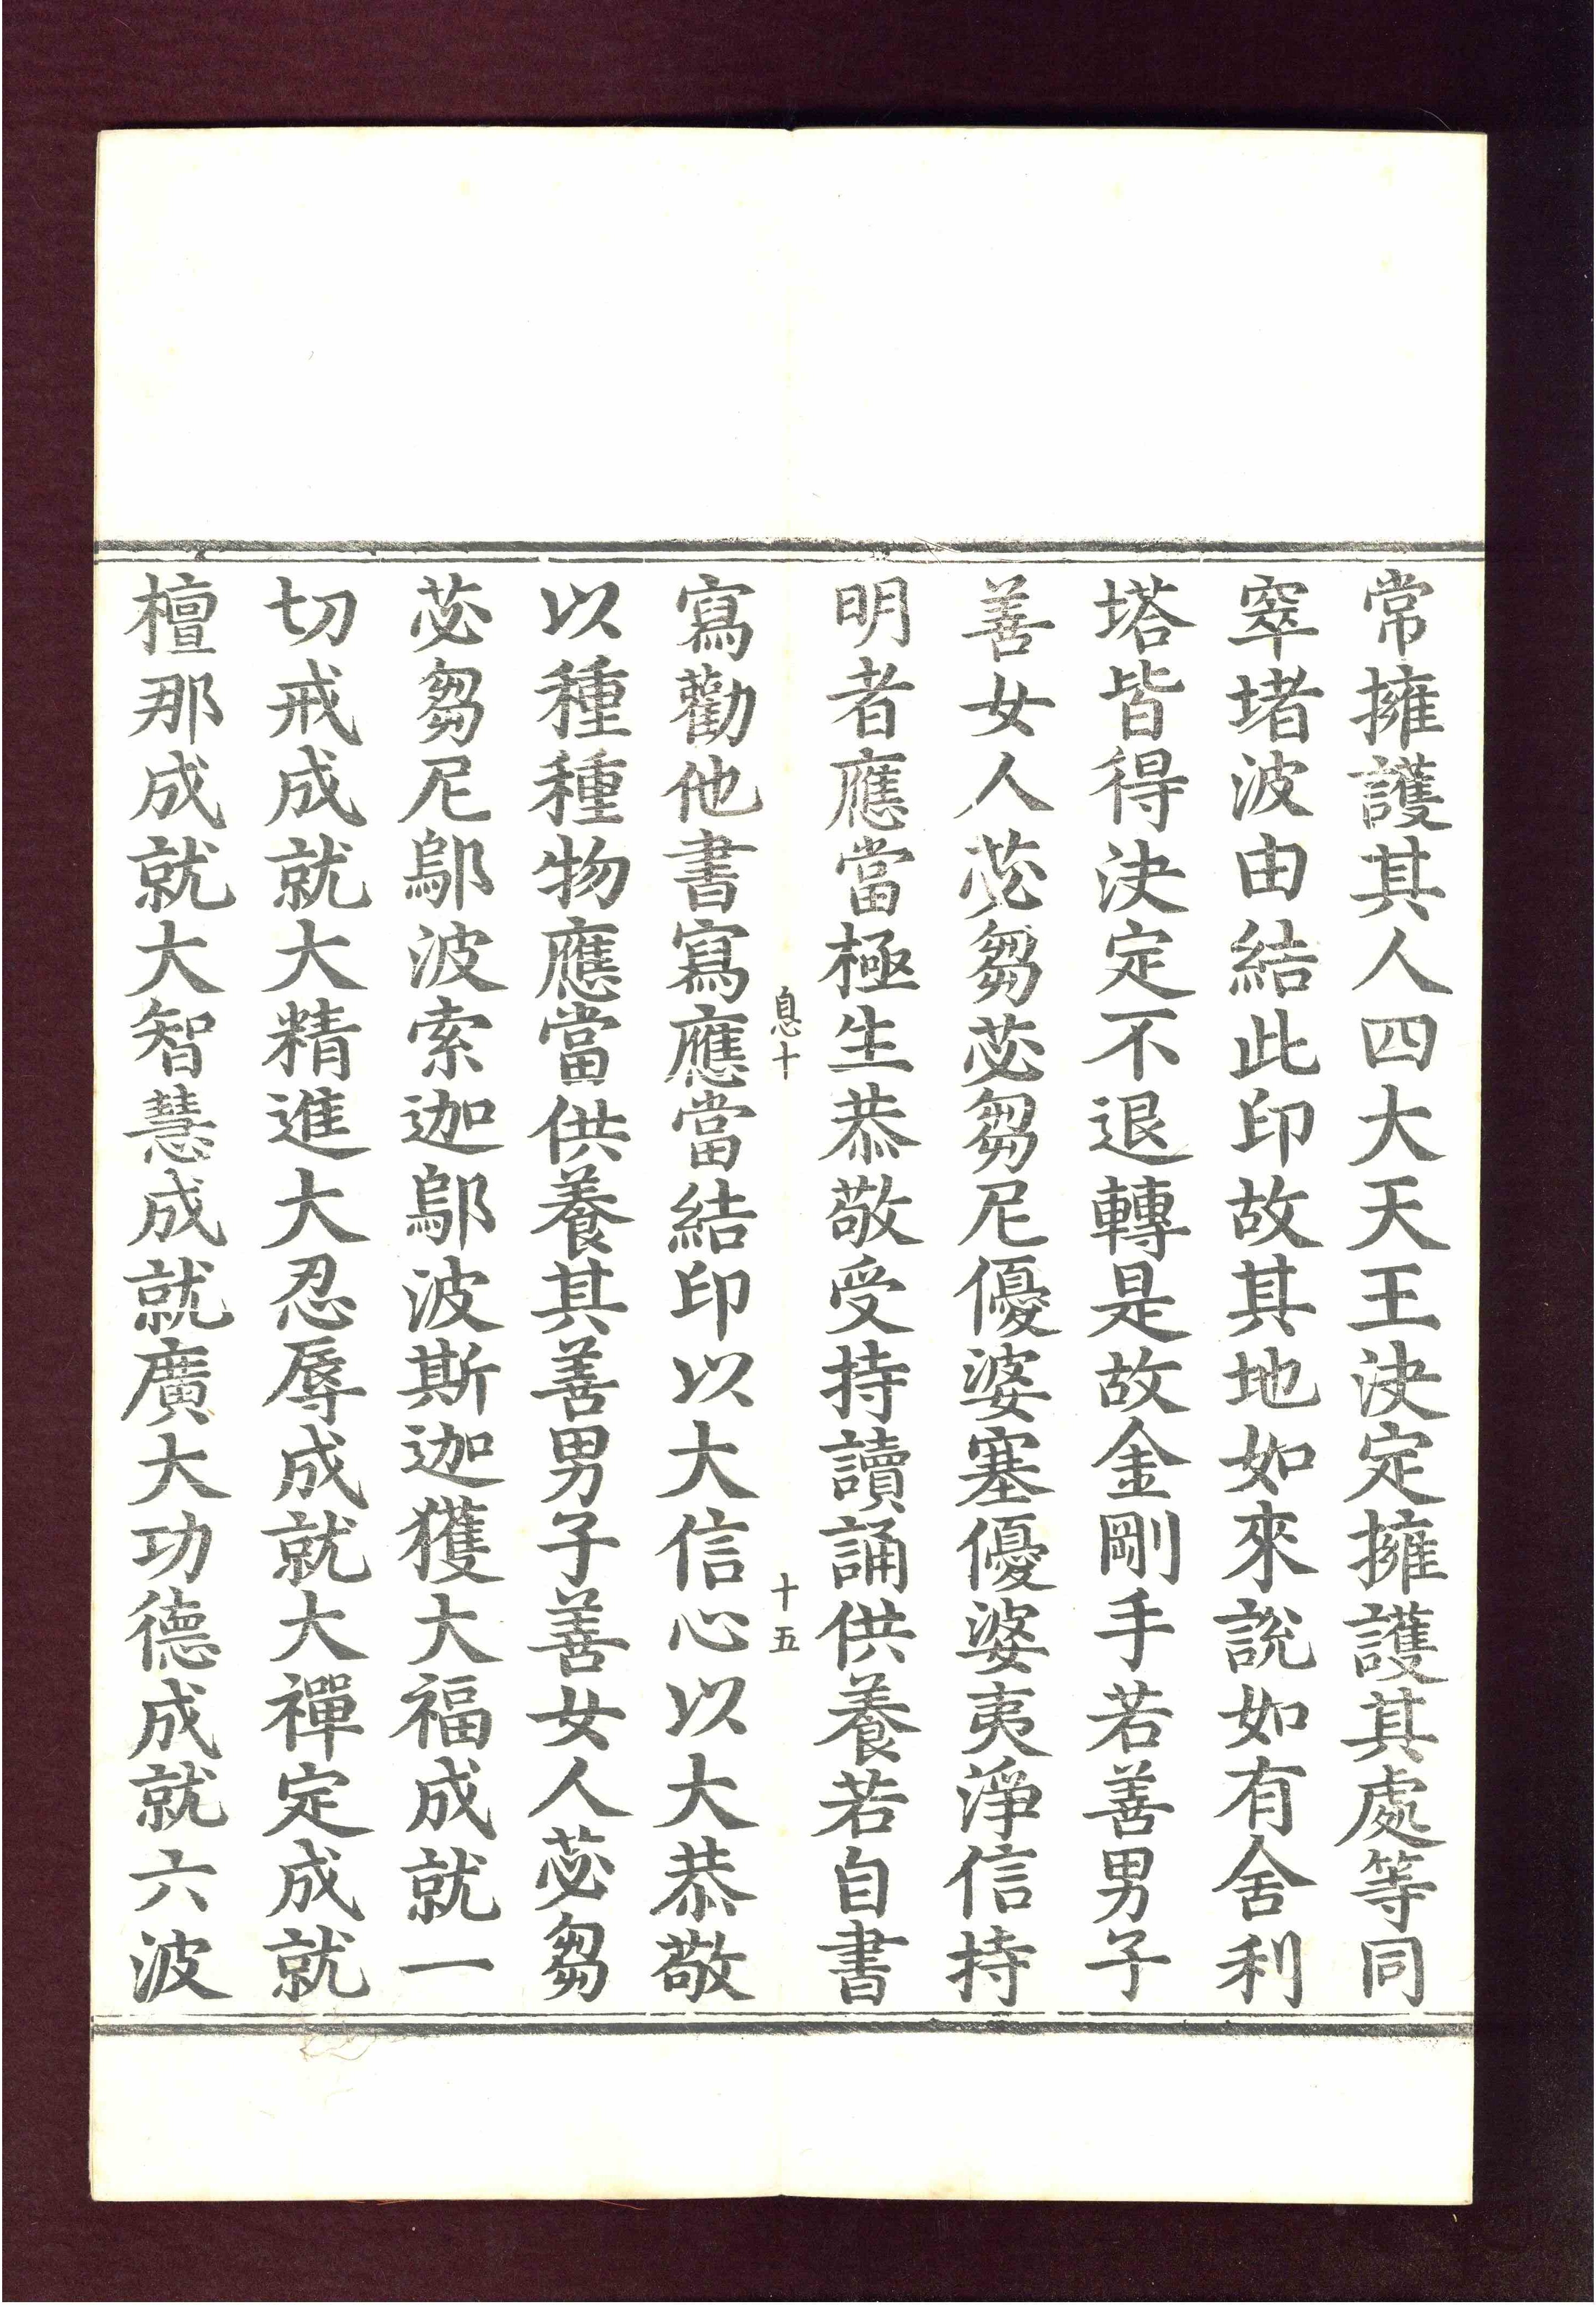 常擁護其人四大天王決定擁護其處等同
窣堵波由結此印故其地如來說如有舍利
塔皆得決定不退轉是故金剛手若善男子
善女人苾芻苾芻尼優婆塞優婆夷淨信持
明者應當極生恭敬受持讀誦供養若自書
息十 十五
寫勸他書寫應當結印以大信心以大恭敬
以種種物應當供養其善男子善女人苾芻
苾芻尼鄔波索迦鄔波斯迦獲大福成就一
切戒成就大精進大忍辱成就大禪定成就
檀那成就大智慧成就廣大功德成就六波